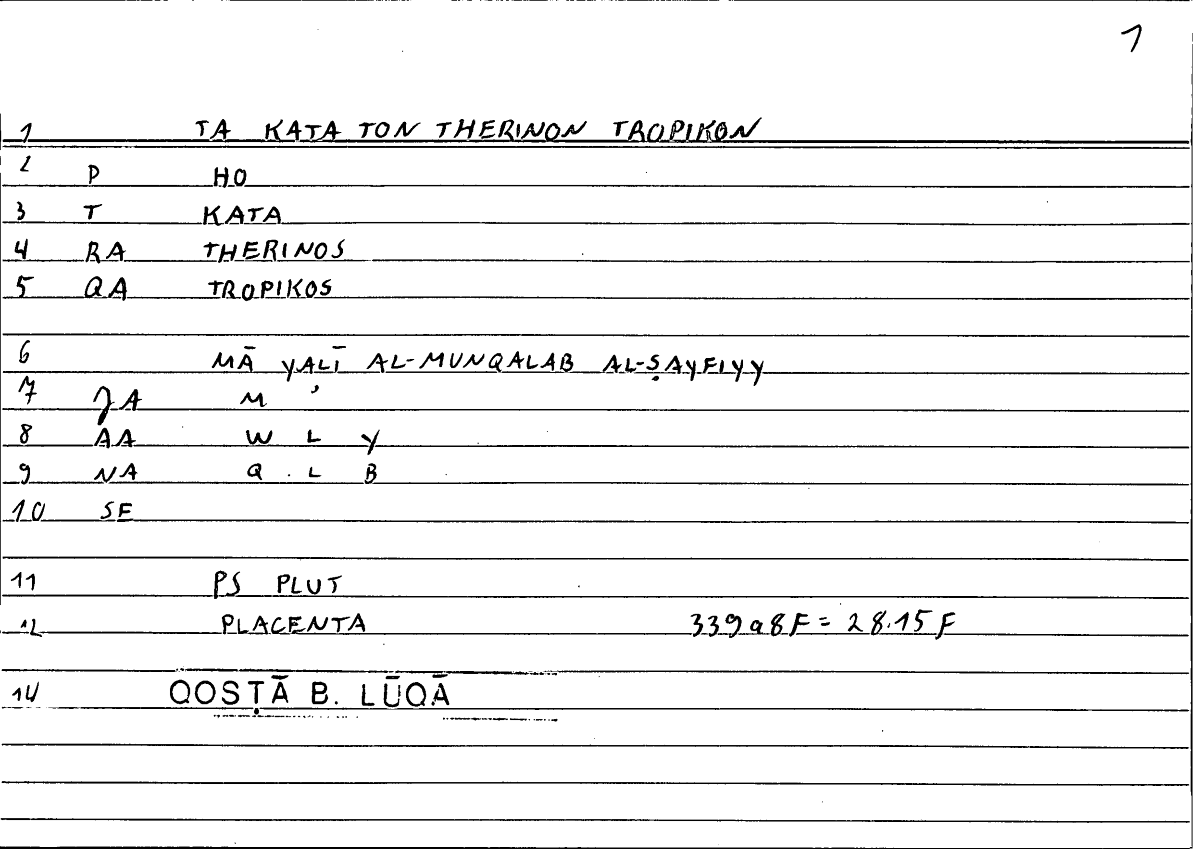 1
1 TA KATA TON THERINON TROPIKON
2 P HO
3 T KATA
4 RA THERINOS
5 QA TROPIKOS
6 MĀ YALĪ AL-MUNQALAB AL-ṢAYFIYY
7 JA M ʾ
8 AA W L Y
9 NA Q . L B
10 SE
11 PS PLUT
12 PLACENTA 339a8F = 28.15F
14 QOSṬĀ B. LŪQĀ